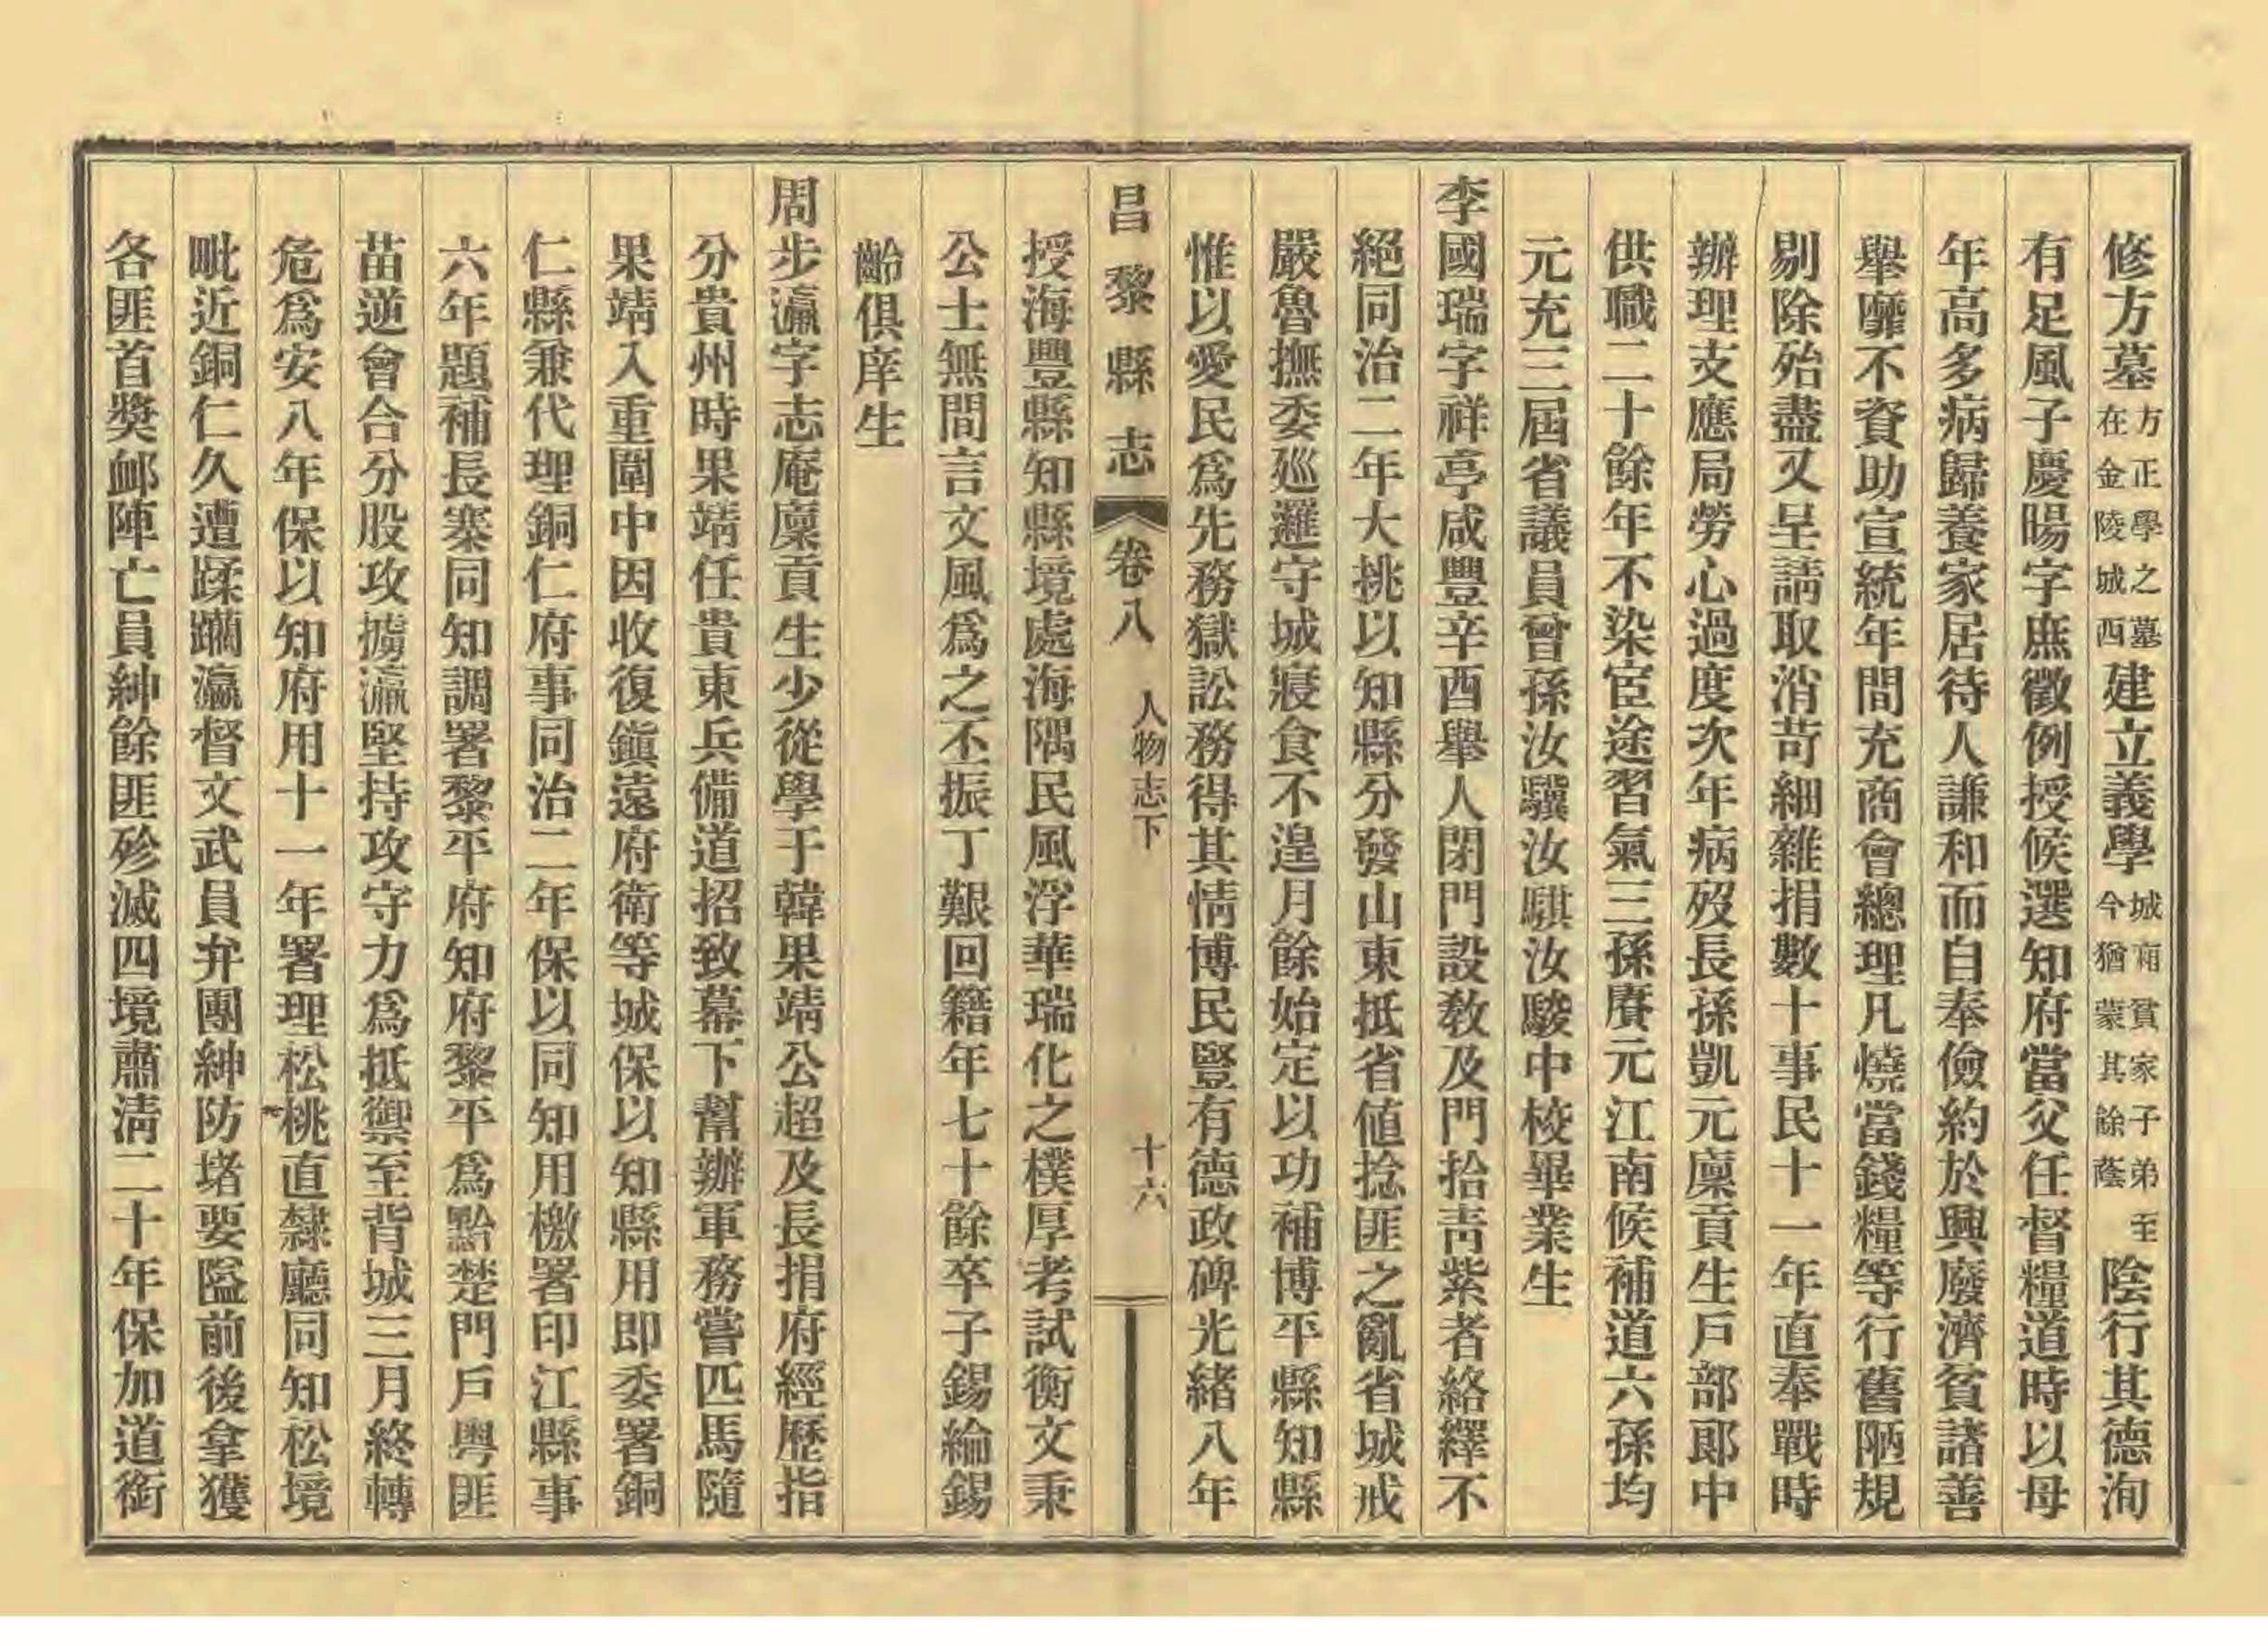 修方墓方正學之墓在金陵城西建立義學城廂貧家子弟至今猶蒙其餘蔭陰行其德洵
有足風子慶暘字庶徵例授候選知府當父任督糧道時以母
年高多病歸養家居待人謙和而自奉儉約於興廢濟貧諸善
舉靡不資助宣統年間充商會總理凡燒當錢糧等行舊陋規
剔除殆盡又呈請取消苛細雜捐數十事民十一年直奉戰時
辦理支應局勞心過度次年病歿長孫凱元廩貢生戶部郎中
供職二十餘年不染宦途習氣三孫賡元江南候補道六孫均
元充三屆省議員曾孫汝驥汝騏汝駿中校畢業生
李國瑞字祥亭咸豐辛酉舉人閉門設教及門拾青紫者絡繹不
絕同治二年大挑以知縣分發山東抵省值捻匪之亂省城戒
嚴魯撫委廵邏守城寢食不遑月餘始定以功補博平縣知縣
惟以愛民爲先務獄訟務得其情博民豎有德政碑光緒八年
昌黎縣志 卷八 人物志下 十六
授海豐縣知縣境處海隅民風浮華瑞化之樸厚考試衡文秉
公士無間言文風爲之丕振丁艱回籍年七十餘卒子錫綸錫
齡俱庠生
周步瀛字志庵廩貢生少從學于韓果靖公超及長捐府經歷指
分貴州時果靖任貴東兵備道招致幕下幫辦軍務嘗匹馬隨
果靖入重圍中因收復鎮遠府衛等城保以知縣用即委署銅
仁縣兼代理銅仁府事同治二年保以同知用檄署印江縣事
六年題補長寨同知調署黎平府知府黎平爲黔楚門戶粵匪
苗逆會合分股攻擄瀛堅持攻守力爲抵禦至背城三月終轉
危爲安八年保以知府用十一年署理松桃直隸廳同知松境
毗近銅仁久遭蹂躪瀛督文武員弁團紳防堵要隘前後拿獲
各匪首獎卹陣亡員紳餘匪殄滅四境肅清二十年保加道銜